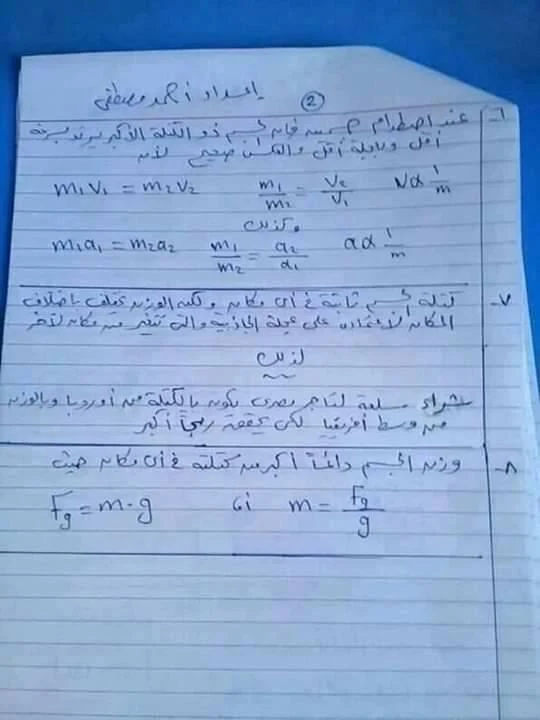 إعداد أحمد مصطفى
(2)
٦- عند اصطدام جسمين فإن الجسم ذو الكتلة الأكبر يرتد بسرعة
أقل وبعجلة أقل والعكس صحيح لأن
m₁v₁ = m₂v₂ m₁/m₂ = v₂/v₁ v α 1/m
وكذلك
m₁a₁ = m₂a₂ m₁/m₂ = a₂/a₁ a α 1/m
٧- كتلة الجسم ثابتة في أي مكان ولكن الوزن يختلف باختلاف
المكان لاعتماده على عجلة الجاذبية والتي تتغير من مكان لآخر
لذلك
شراء سلعة لتاجر مصرى يكون بالكتلة من أوروبا وبالوزن
من وسط أفريقيا لكى يحقق ربحاً أكبر
٨- وزن الجسم دائماً أكبر من كتلته في أى مكان حيث
Fg = m·g أى m = Fg/g